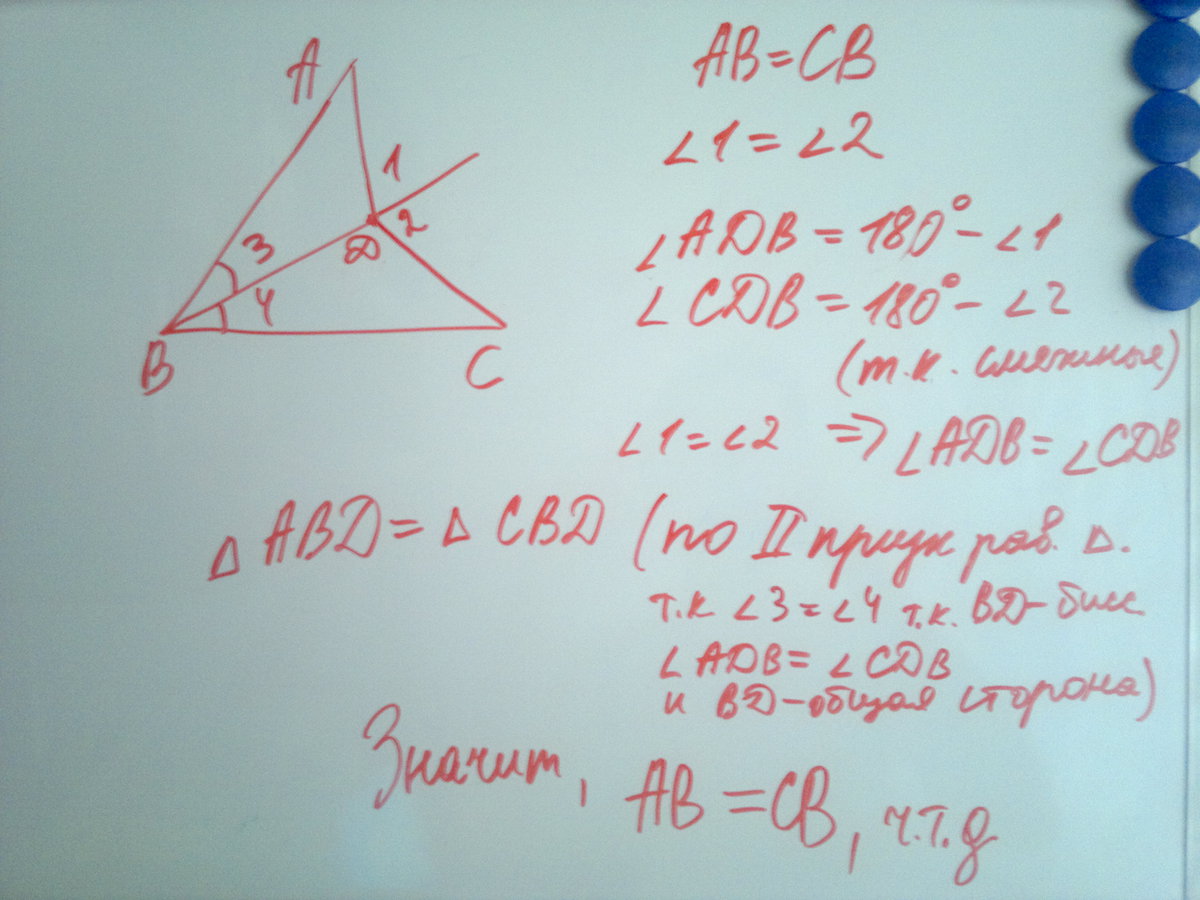 A
1
2
D
3
4
B
C
AB=CB
∠1=∠2
∠ADB=180°-∠1
∠CDB=180°-∠2
(т.к. смежные)
∠1=∠2 => ∠ADB=∠CDB
Δ ABD= Δ CBD (по II призн рав. Δ.
т.к ∠3=∠4 т.к. BD-бисс
∠ADB= ∠CDB
и BD-общая сторона)
Значит, AB=CB, ч.т.д